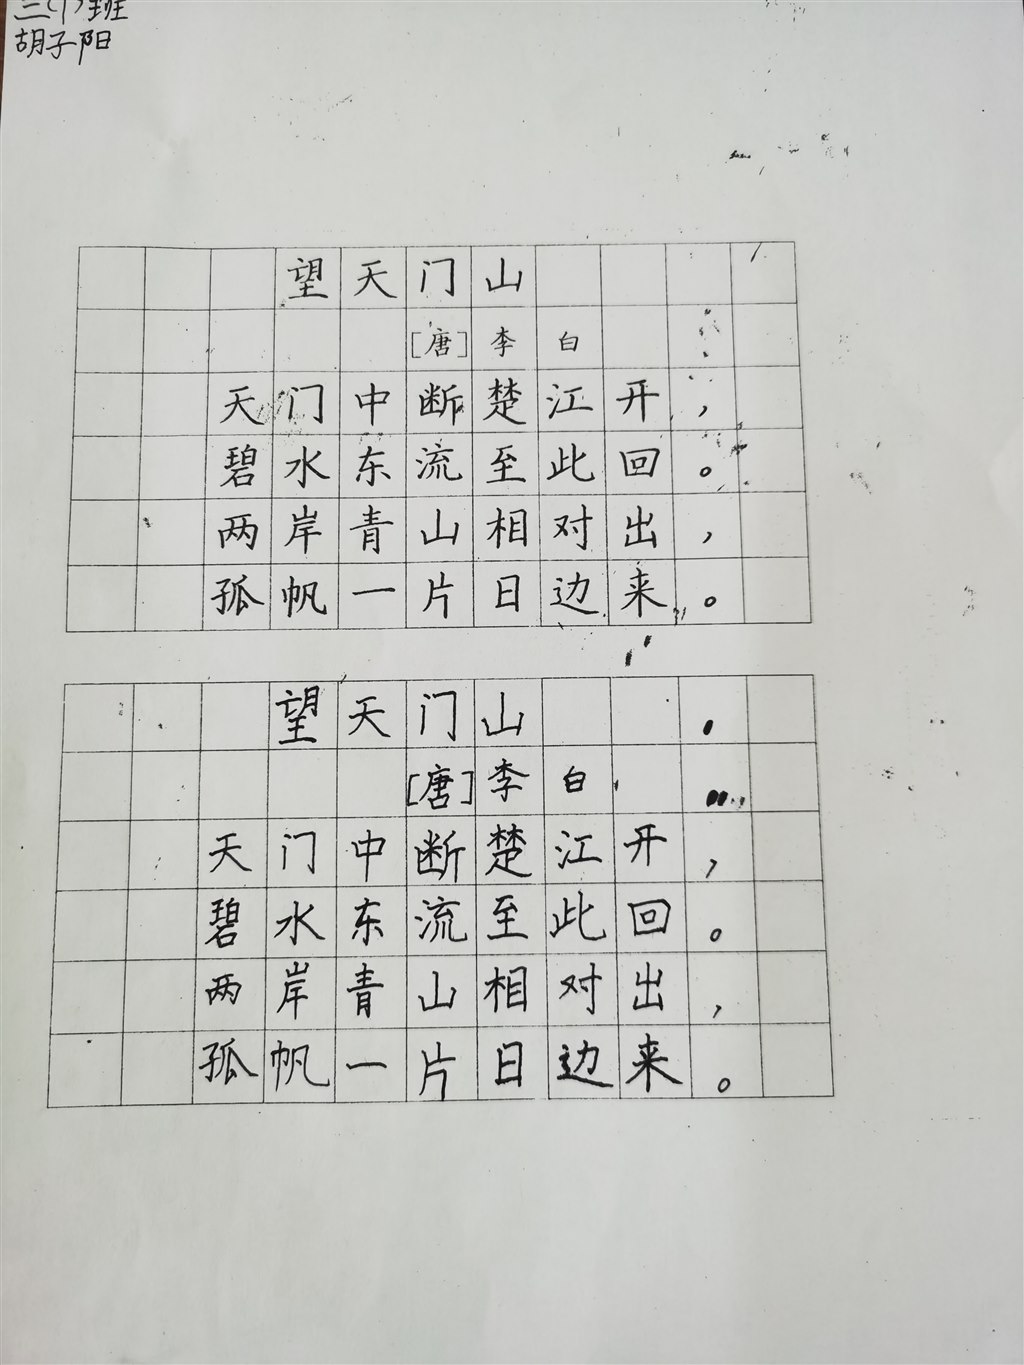 三(1)班
胡子阳
望天门山
[唐]李白
天门中断楚江开，
碧水东流至此回。
两岸青山相对出，
孤帆一片日边来。
望天门山
[唐]李白
天门中断楚江开，
碧水东流至此回。
两岸青山相对出，
孤帆一片日边来。